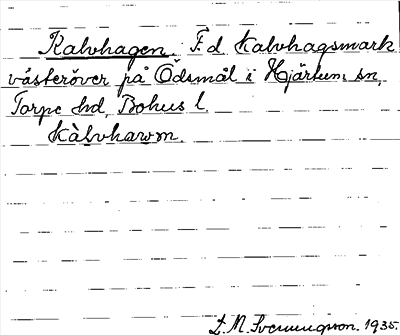 Kalvhagen. F. d. Kalvhagsmark
västeröver på Ödsmål i Hjärtum sn,
Torpe hd, Bohus l.
kàlvhawm.
L. M. Svenungsson. 1935.